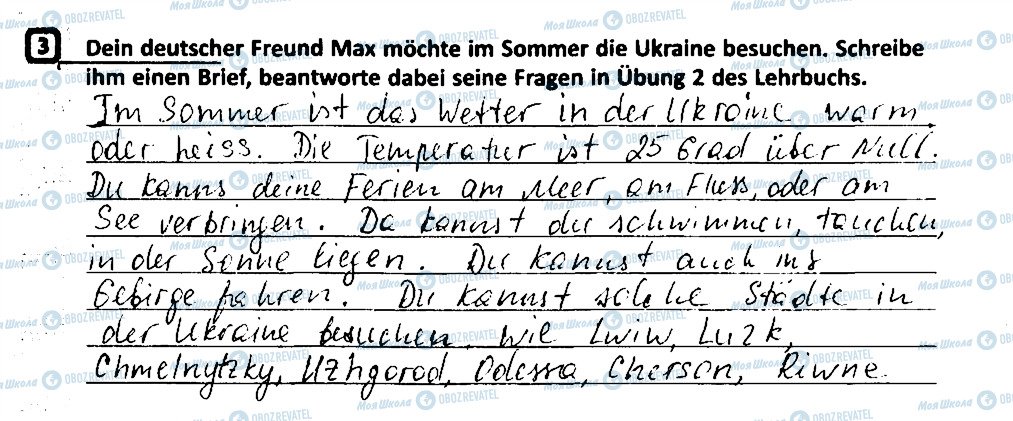 3 Dein deutscher Freund Max möchte im Sommer die Ukraine besuchen. Schreibe
ihm einen Brief, beantworte dabei seine Fragen in Übung 2 des Lehrbuchs.
Im Sommer ist das Wetter in der Ukraine warm
oder heiss. Die Temperatur ist 25 Grad über Null.
Du kanns deine Ferien am Meer, am Fluss, oder am
See verbringen. Da kannst du schwimmen, tauchen,
in der Sonne liegen. Du kannst auch ins
Gebirge fahren. Du kannst solche Städte in
der Ukraine besuchen, wie Lwiw, Luzk,
Chmelnytzky, Uzhgorod, Odessa, Cherson, Riwne.